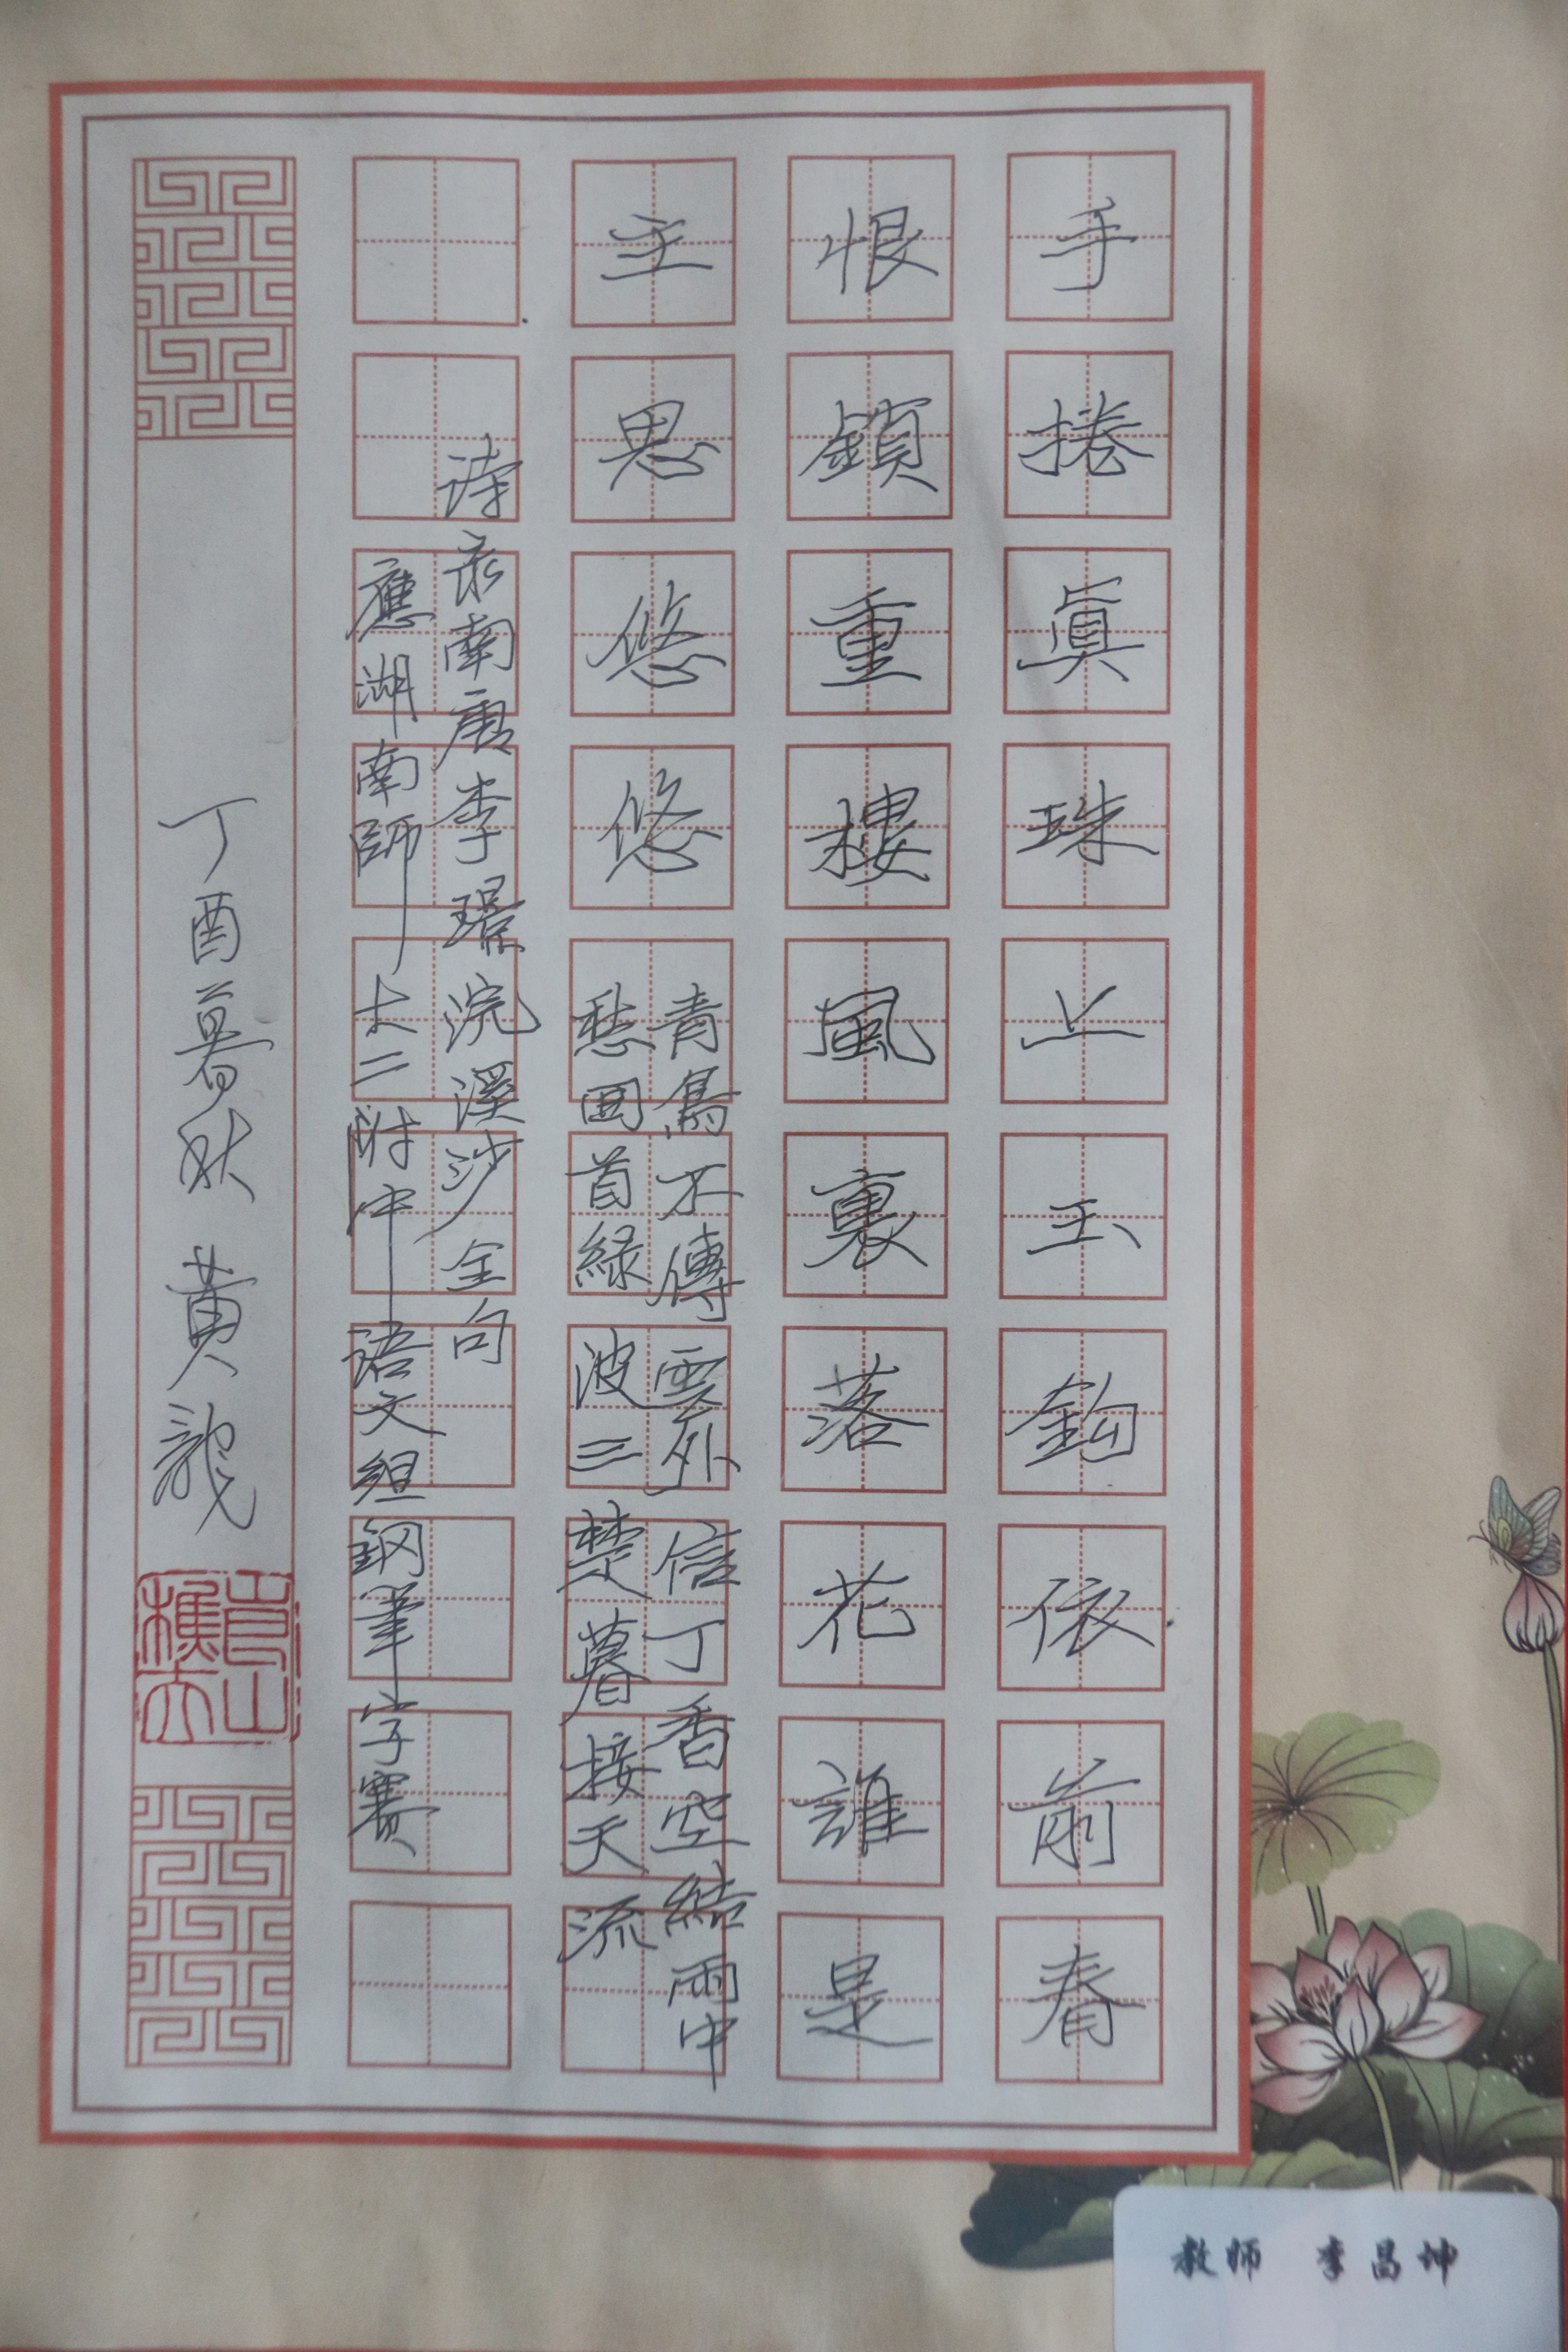 手捲眞珠上玉鈎依前春
恨鎖重樓風裏落花誰是
主思悠悠
青鳥不傳雲外信丁香空結雨中
愁回首綠波三楚暮接天流
诗录南唐李璟浣溪沙全句
應湖南師大二附中语文组钢筆字賽
丁酉暮秋 黄龍
教师 李昌坤